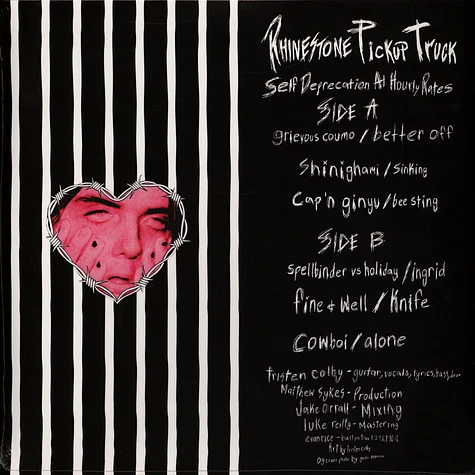 Rhinestone Pickup Truck
Self Deprecation At Hourly Rates
Side A
grievous coumo / better off
Shinighami / Sinking
Cap'n ginyu / bee sting
Side B
spellbinder vs holiday / ingrid
fine & well / Knife
cowboi / alone
tristen colby - guitar, vocals, lyrics, bass,
Matthew Sykes - Production
Jake Orrall - Mixing
luke reilly - Mastering
evan rice -
Art by
cover photo by